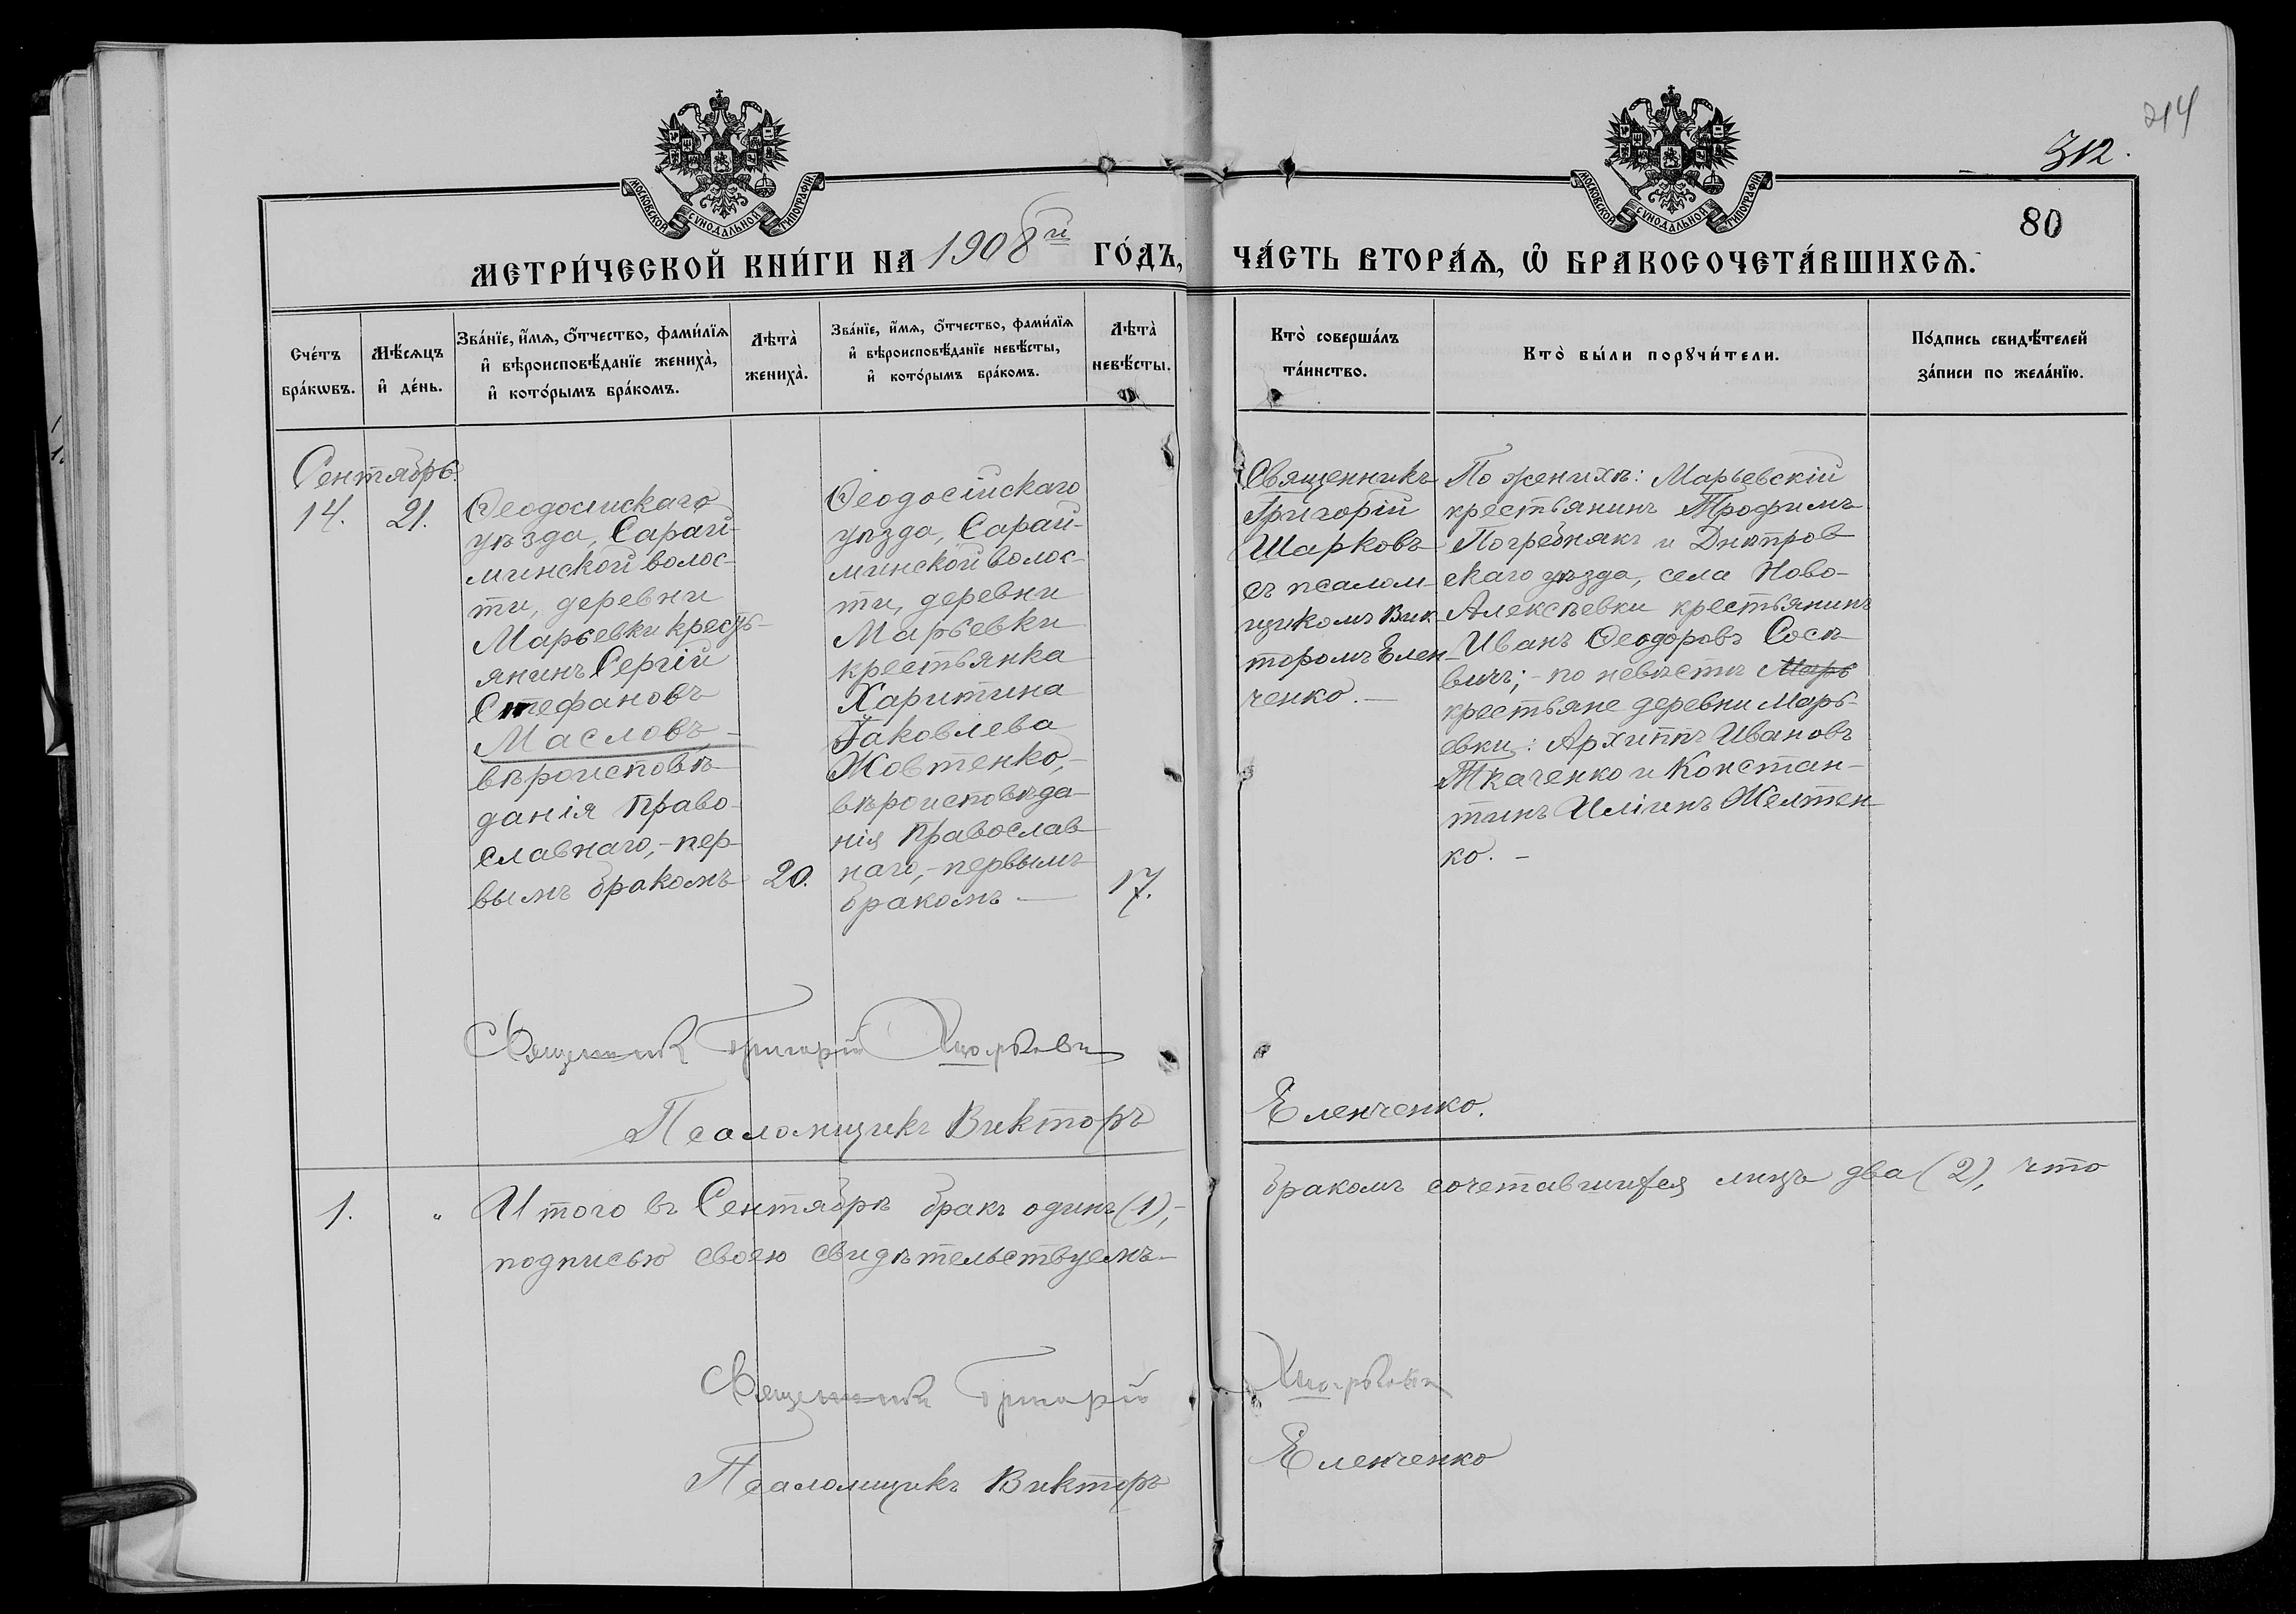 214
312.
80
МОСКОВСКОЙ СѴНОДАЛЬНОЙ ТИПОГРАФІИ
МОСКОВСКОЙ СѴНОДАЛЬНОЙ ТИПОГРАФІИ
МЕТРИ́ЧЕСКОЙ КНИ́ГИ НА 1908й ГО́ДЪ,
ЧА́СТЬ ВТОРА́Ѧ, Ѽ БРАКОСОЧЕТА́ВШИХСѦ.
Сче́тъ
бра́кѡвъ.
Мѣ́сѧцъ
и҆ де́нь.
Зва́нїе, и҆́мѧ, ѻ҆́тчество, фами́лїѧ
и҆ вѣроисповѣ́данїе жениха̀,
и҆ кото́рымъ бра́комъ.
Лѣ́та̀
жениха̀.
Зва́нїе, и҆́мѧ, ѻ҆́тчество, фами́лїѧ
и҆ вѣроисповѣ́данїе невѣ́сты,
и҆ кото́рымъ бра́комъ.
Лѣ́та̀
невѣ́сты.
Кто̀ соверша́лъ
та́инство.
Кто̀ бы́ли порꙋчи́тели.
По́дпись свидѣ́телей
за́писи по жела́нїю.
Сентябрь.
14.
21.
Ѳеодосійскаго
уѣзда, Сарай-
минской волос-
ти, деревни
Марьевки кресть-
янинъ Сергій
Стефановъ
Масловъ,-
вѣроисповѣ-
данія право-
славнаго,- пер-
вымъ бракомъ
20.
Ѳеодосійскаго
уѣзда, Сарай-
минской волос-
ти, деревни
Марьевки
крестьянка
Харитина
Іаковлева
Жовтенко,-
вѣроисповѣда-
нія православ-
наго,- первымъ
бракомъ —
17.
Священникъ
Григорій
Шарковъ
съ псалом-
щикомъ Вик-
торомъ Елен-
ченко. —
По женихѣ: Марьевскій
крестьянинъ Трофимъ
Погребнякъ и Днѣпров
скаго уѣзда, села Ново-
Алексѣевки крестьянинъ
Иванъ Ѳеодоровъ Сосѣ
вичъ; - по невѣстѣ Марь
крестьяне деревни Марь-
евки: Архиппъ Ивановъ
Ткаченко и Констан-
тинъ Иліинъ Желтен-
ко. -
Священникъ Григорій Шарковъ
Псаломщикъ Викторъ
Еленченко.
1. " Итого въ Сентябрѣ бракъ одинъ (1),- бракомъ сочетавшихся лицъ два (2), что
подписью своею свидѣтельствуемъ-
Священникъ Григорій Шарковъ
Псаломщикъ Викторъ Еленченко